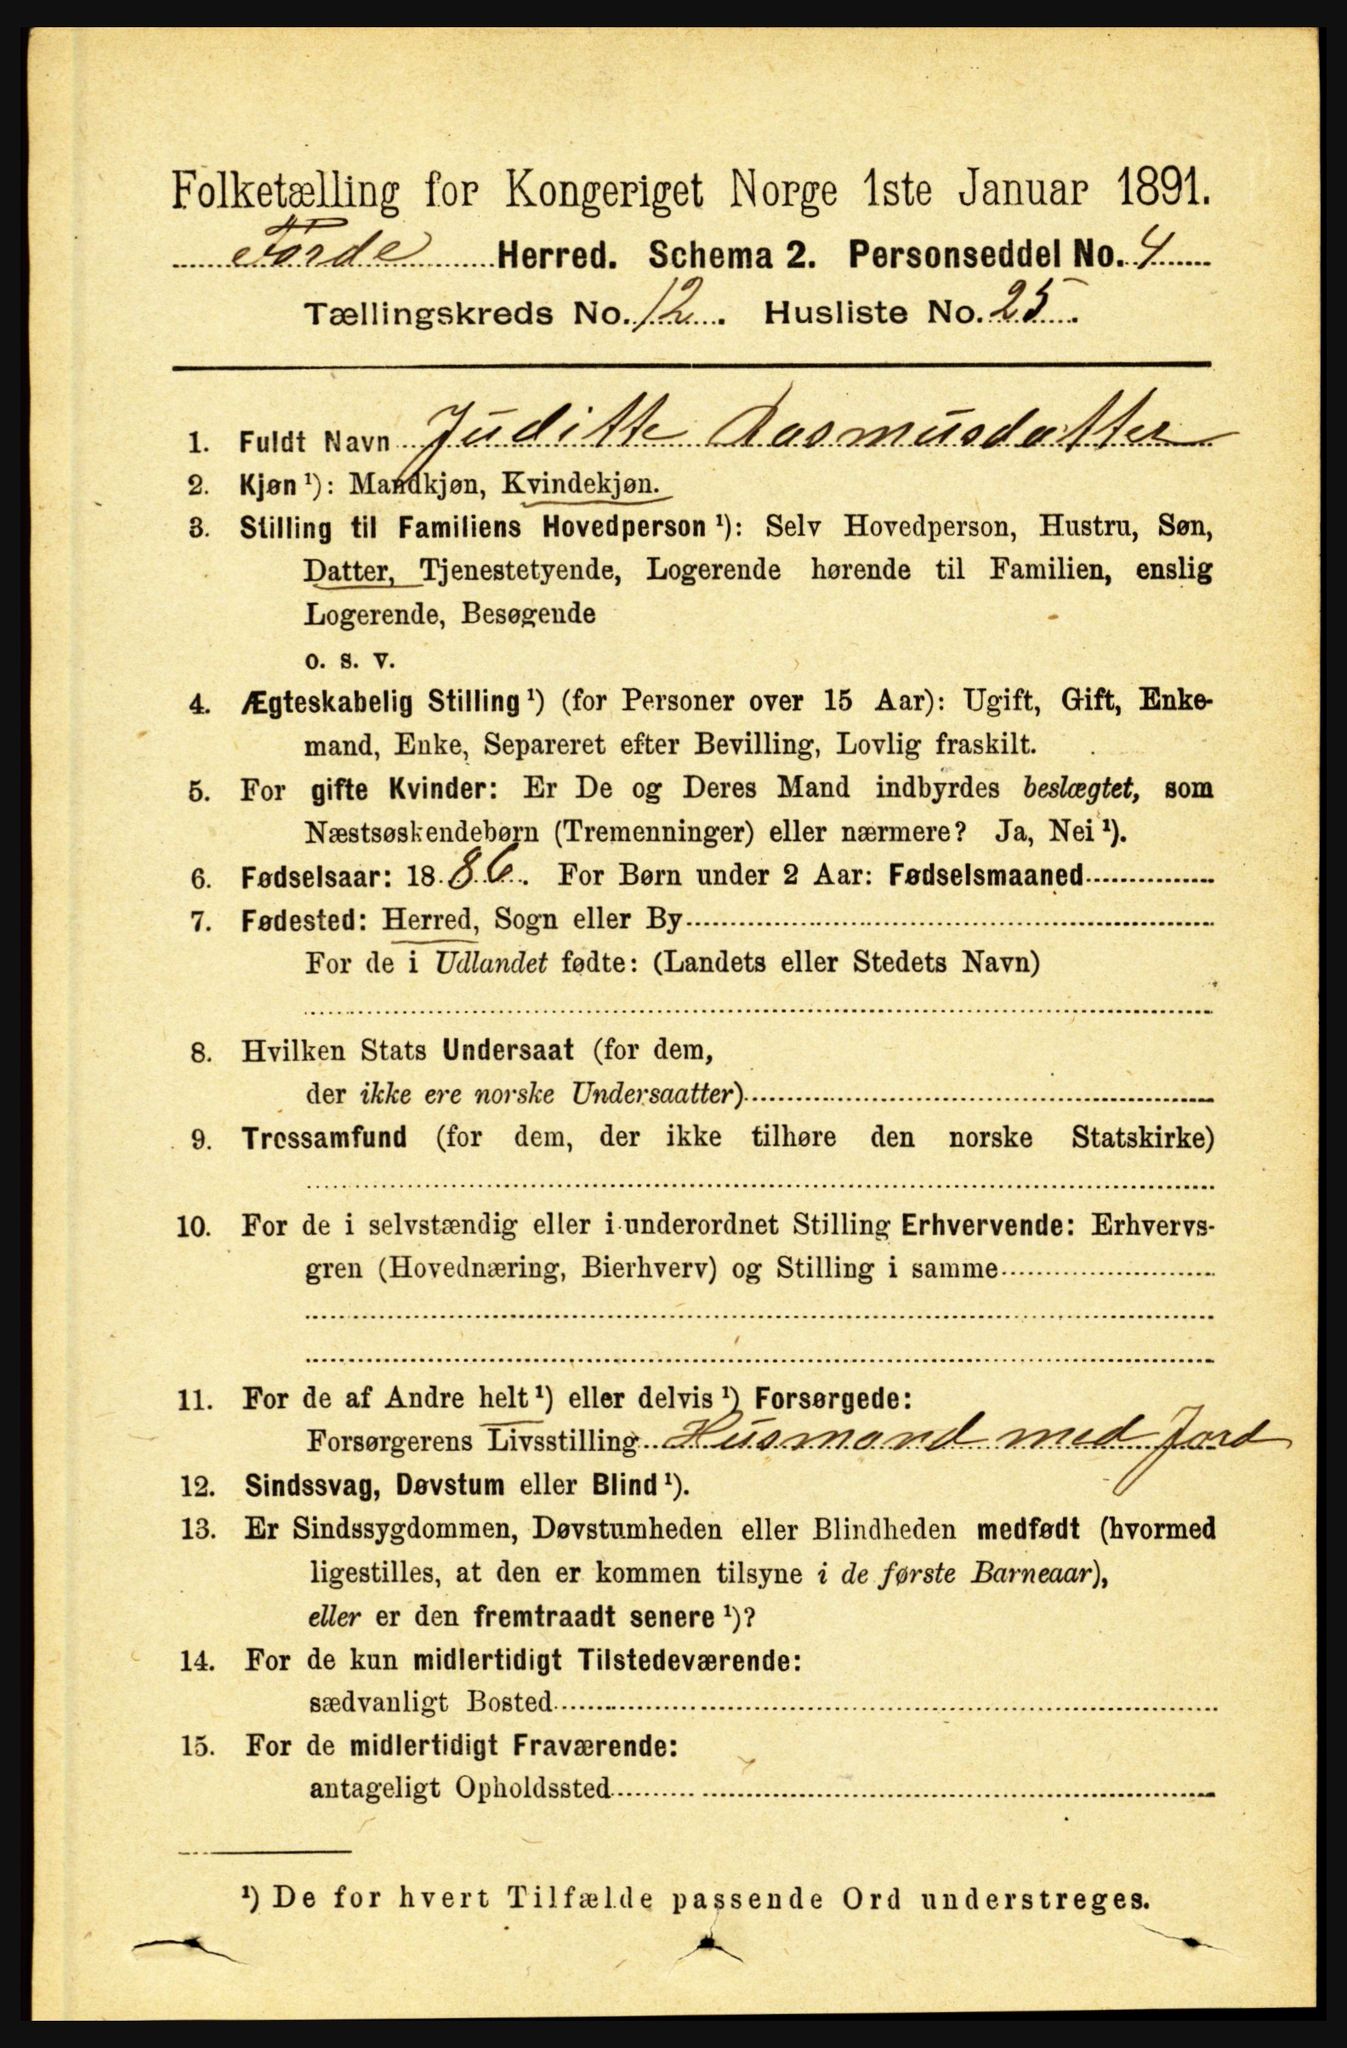 Folketælling for Kongeriget Norge 1ste Januar 1891.
Førde Herred. Schema 2. Personseddel No. 4
Tællingskreds No. 12. Husliste No. 25.
1. Fuldt Navn Juditte Rasmusdatter
2. Kjøn ¹): Mandkjøn, Kvindekjøn.
3. Stilling til Familiens Hovedperson ¹): Selv Hovedperson, Hustru, Søn,
Datter, Tjenestetyende, Logerende hørende til Familien, enslig
Logerende, Besøgende
o. s. v.
4. Ægteskabelig Stilling ¹) (for Personer over 15 Aar): Ugift, Gift, Enke-
mand, Enke, Separeret efter Bevilling, Lovlig fraskilt.
5. For gifte Kvinder: Er De og Deres Mand indbyrdes beslægtet, som
Næstsøskendebørn (Tremenninger) eller nærmere? Ja, Nei ¹).
6. Fødselsaar: 1886. For Børn under 2 Aar: Fødselsmaaned
7. Fødested: Herred, Sogn eller By
For de i Udlandet fødte: (Landets eller Stedets Navn)
8. Hvilken Stats Undersaat (for dem,
der ikke ere norske Undersaatter)
9. Trossamfund (for dem, der ikke tilhøre den norske Statskirke)
10. For de i selvstændig eller i underordnet Stilling Erhvervende: Erhvervs-
gren (Hovednæring, Bierhverv) og Stilling i samme
11. For de af Andre helt ¹) eller delvis ¹) Forsørgede:
Forsørgerens Livsstilling Husmand med Jord
12. Sindssvag, Døvstum eller Blind ¹).
13. Er Sindssygdommen, Døvstumheden eller Blindheden medfødt (hvormed
ligestilles, at den er kommen tilsyne i de første Barneaar),
eller er den fremtraadt senere ¹)?
14. For de kun midlertidigt Tilstedeværende:
sædvanligt Bosted
15. For de midlertidigt Fraværende:
antageligt Opholdssted
¹) De for hvert Tilfælde passende Ord understreges.